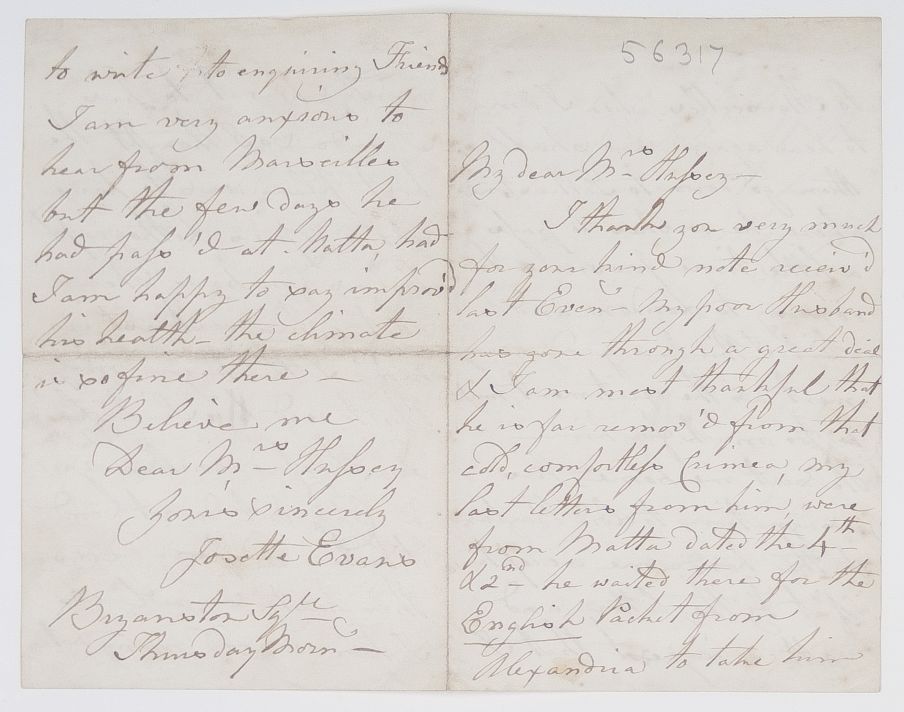 56317
My dear Mrs Hussey -
I thank you very much
for your kind note receiv'd
last Eveng - My poor Husband
has gone through a great deal
& I am most thankful that
he is far remov'd from that
cold, comfortless Crimea, my
last letters from him, were
from Malta dated the 4th -
& 2nd - he waited there for the
English Packet from
Alexandria to take him
to write to enquiring Friends
I am very anxious to
hear from Marseilles
but the few days he
had pass'd at Malta, had
I am happy to say improv'd
his health - the climate
is so fine there -
Believe me
Dear Mrs Hussey
Your's sincerely
Josette Evans
Bryanston Sqre
Thursday Morng -